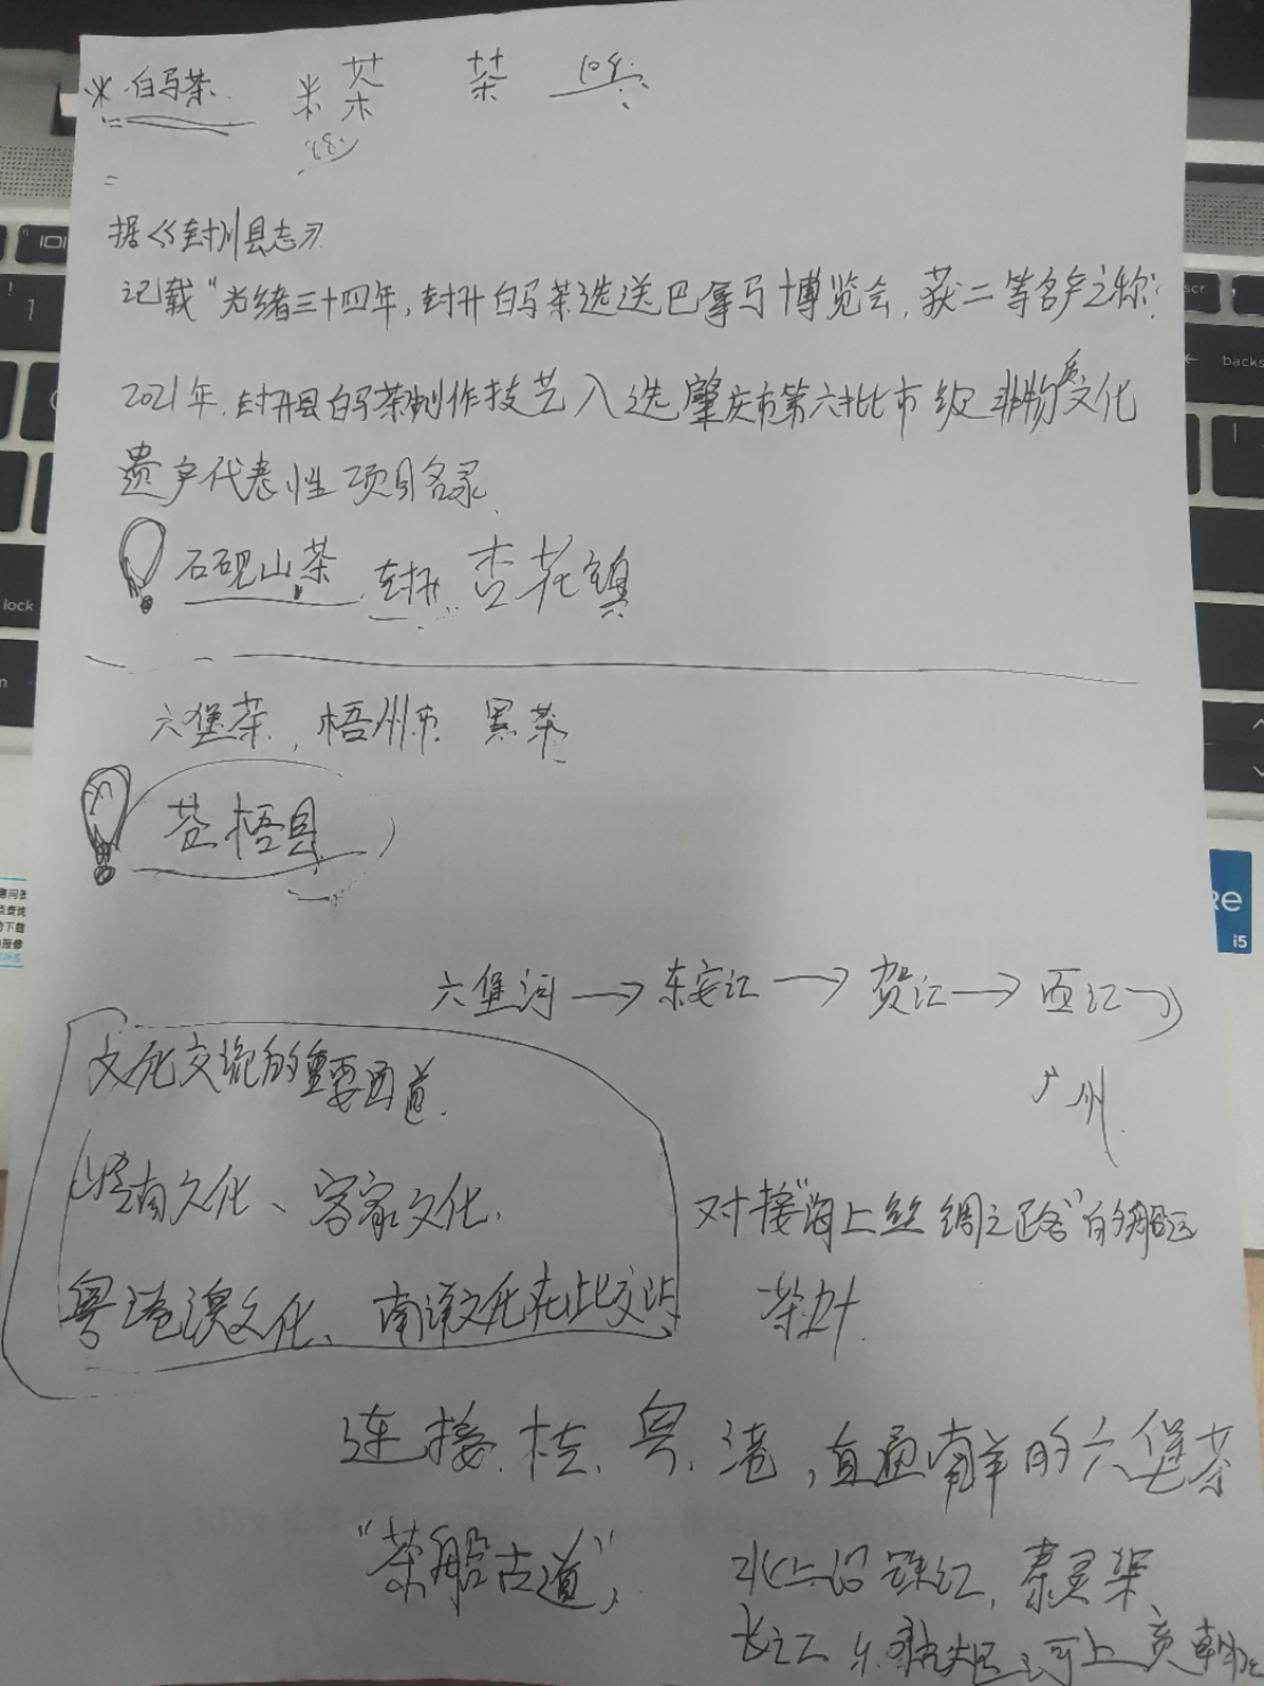 米 白马茶 米 茶 茶 108.
88.
据《封川县志》
记载"光绪三十四年,封开白马茶选送巴拿马博览会,获二等名产之称"
2021年,封开县白马茶制作技艺入选肇庆市第六批市级非物质文化
遗产代表性项目名录.
石砚山茶 封开 杏花镇
六堡茶,梧州市 黑茶
苍梧县
六堡河→东安江→贺江→西江→
广州.
文化交流的重要通道.
岭南文化、客家文化、
粤港澳文化、南洋文化在此交融
对接"海上丝绸之路"的船运
茶叶.
连接桂、粤、港,直通南洋的六堡茶
"茶船古道",
北上沿珠江,秦灵渠、
长江
lock
backs
scr
i5